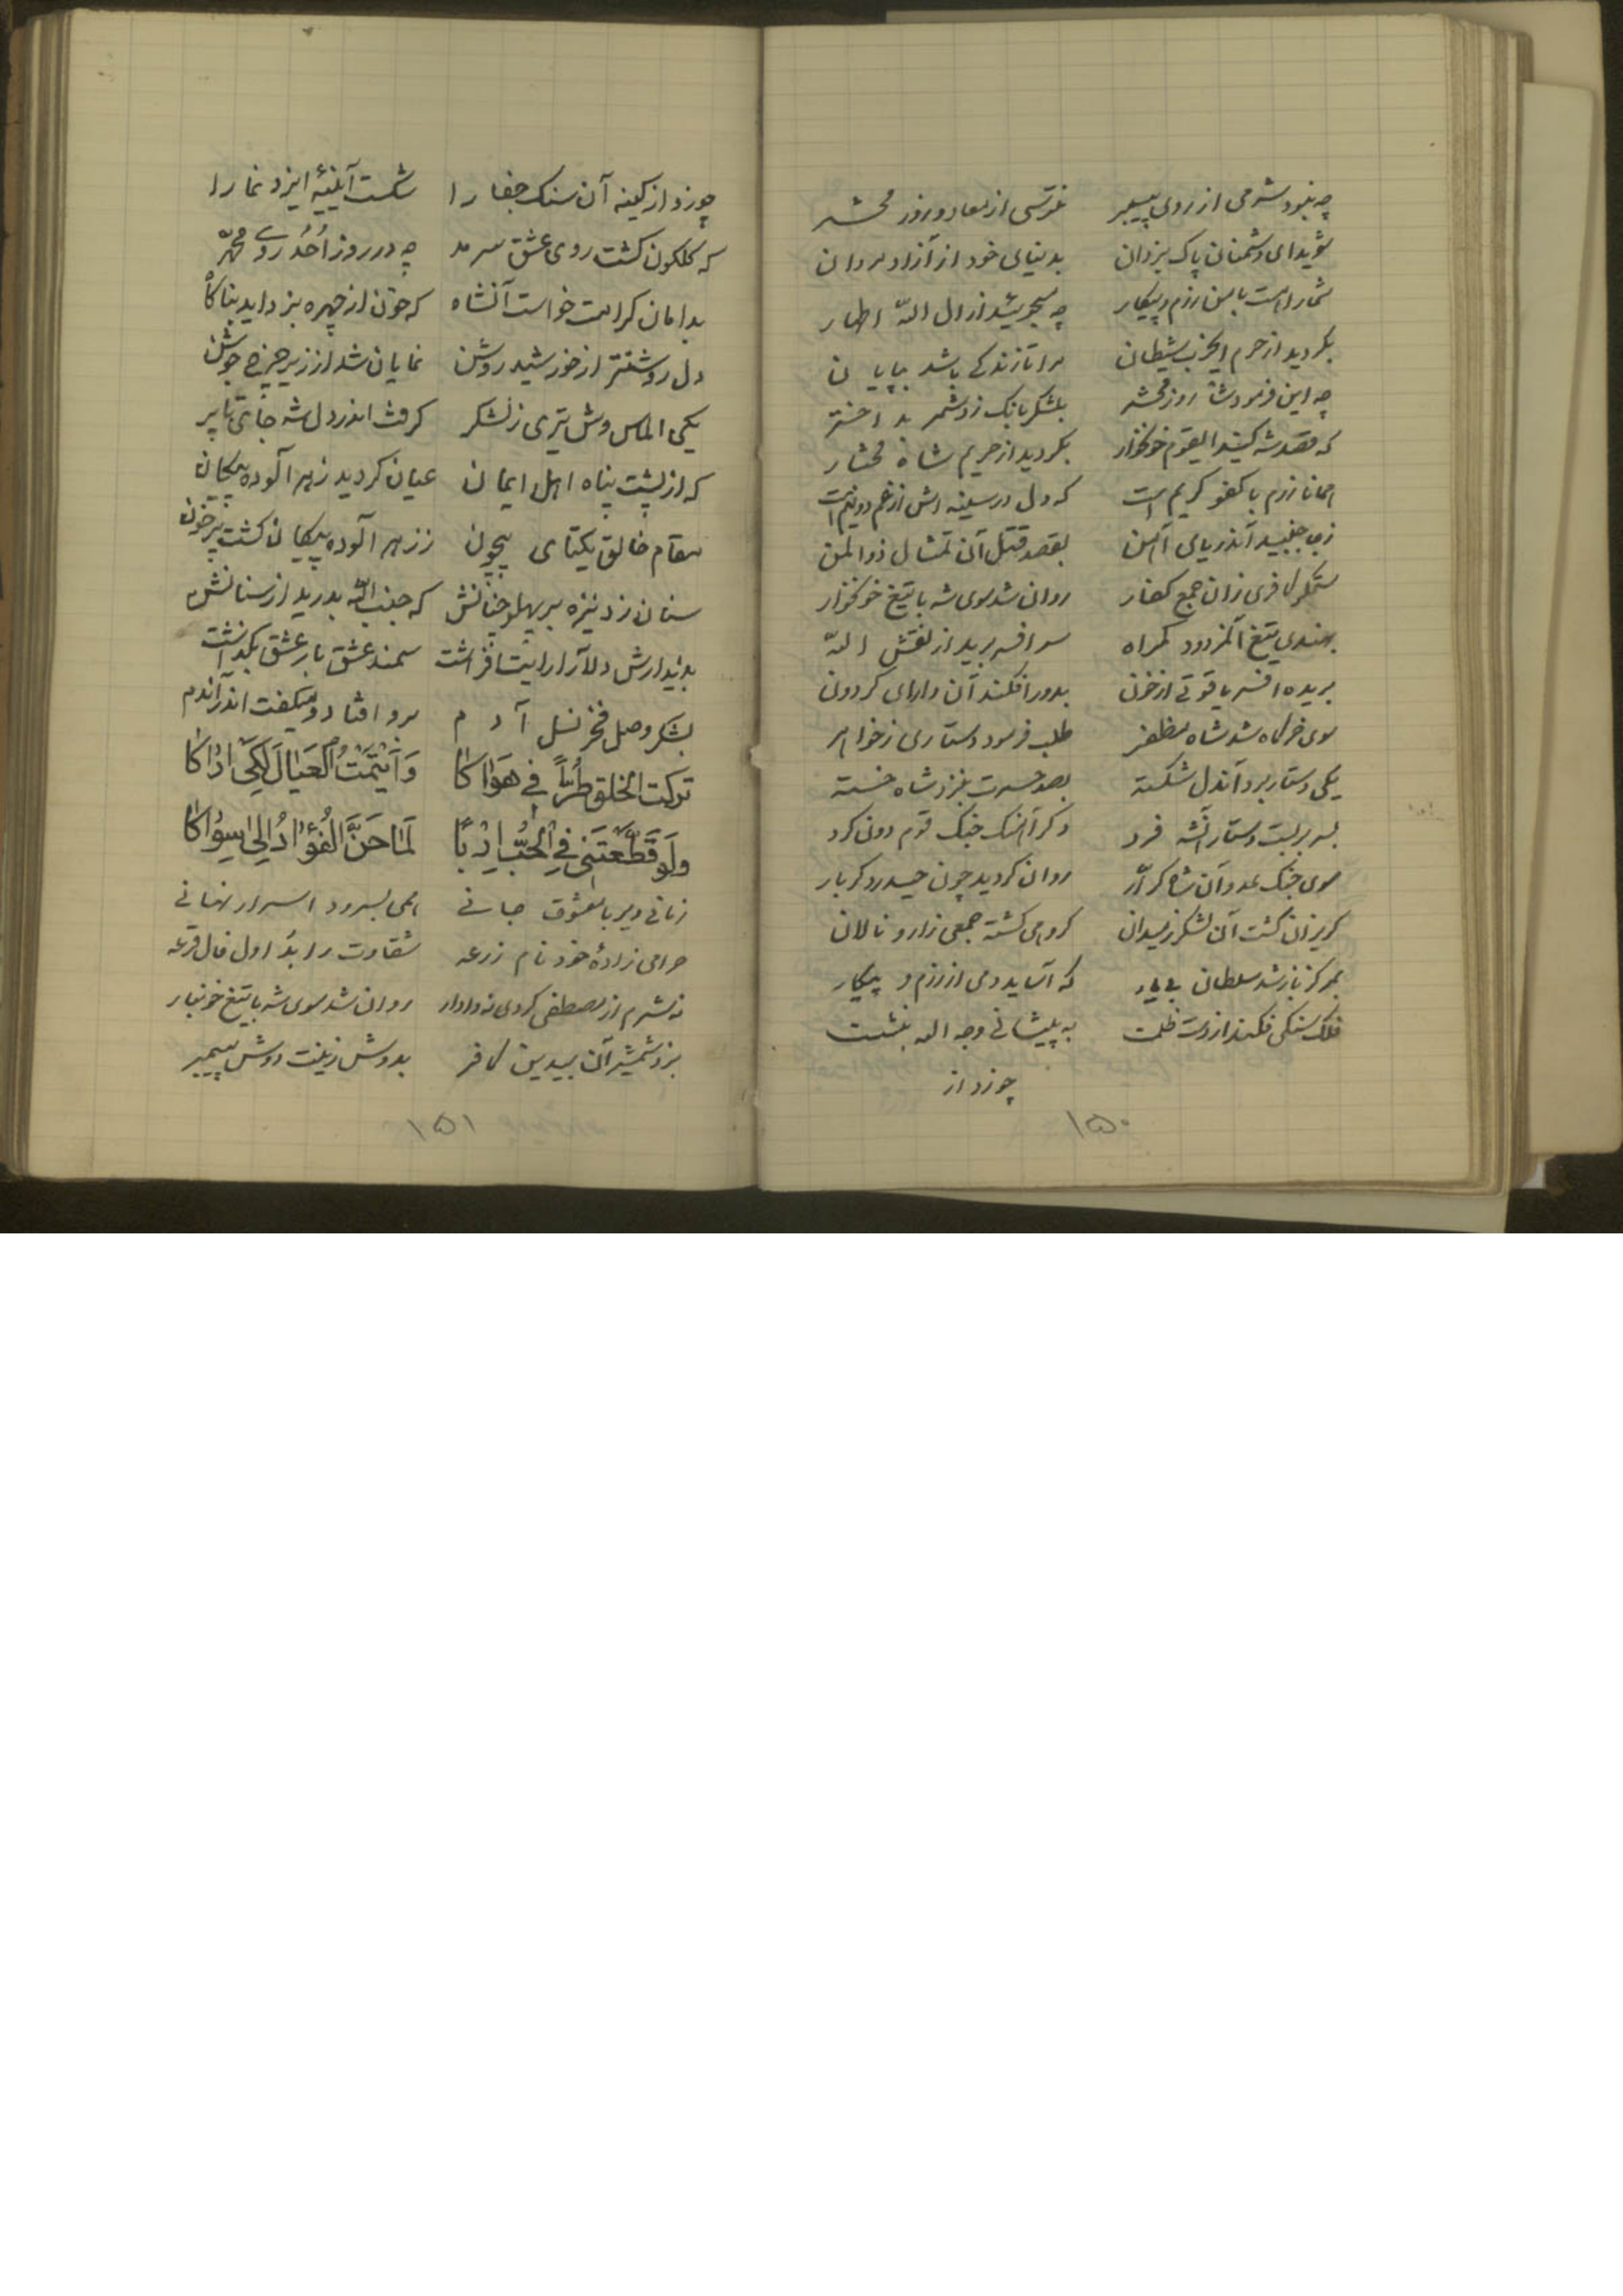 چه نبود شرمی از روی پیمبر نترسی از معاد و روز محشر
شوید ای دشمنان پاک یزدان بدنیای خود از آزاد مردان
شما را هست با من رزم و پیکار چه میجوئید از آل اللّه اطهار
بگردید از حرم ایحزب شیطان مرا تا زندگی باشد بپایان
چه این فرمود شاه روز محشر بلشکر بانک زد شمر بد اختر
که قصد شه کنید ایقوم خونخوار بگردید از حریم شاه مختار
همانا رزم با کفو کریم است که دل در سینه اش از غم دو نیم است
ز جا جنبید آندریای آهن بقصد قتل آن تمثال ذوالمن
ستمگر کافری زان جمع کفار روان شد سوی شه با تیغ خونخوار
بهندی تیغ آنمردود گمراه سر افسر برید از نقش اللّه
بریده افسر یاقوتی از خون بدور افکند آن دارای گردون
سوی خرگاه شد شاه مظفر طلب فرمود دستاری ز خواهر
یکی دستار برد آندل شکسته بصد حسرت بنزد شاه خسته
بسر بربست دستار آنشه فرد دگر آهنگ جنگ قوم دون کرد
سوی جنگ عدو آن شاه کرّار روان گردید چون حیدر دگربار
گریزان گشت آن لشکر ز میدان گروهی کشته جمعی زار و نالان
بمرکز باز شد سلطان بی یار که آساید دمی از رزم و پیکار
فلک سنگی فکند از دست ظلمت به پیشانی وجه اله بنشست
چو زد از
۱۵۰
چو زد از کینه آن سنگ جفا را شکست آیینهٔ ایزد نما را
که گلگون گشت روی عشق سرمد چه در روز اُحُد روی محمّد
بدامان کرامت خواست آنشاه که خون از چهره بزداید بناگاه
دل روشنتر از خورشید روشن نمایان شد از زیر چرخ جوشن
یکی الماس وش تیری ز لشکر گرفت اندر دل شه جای تا پر
که از پشت پناه اهل ایمان عیان گردید زهر آلوده پیکان
مقام خالق یکتای بیچون ز زهر آلوده پیکان گشت پر خون
سنان زد نیزه بر پهلو چنانش که جنب اللّه بدرید از سنانش
بدیدارش دلارا رایت افراشت سمند عشق بار عشق بگذاشت
بشکر وصل فخر نسل آدم برو افتاد و میگفت اندر آندم
تَرَکتُ الخلق طُرّاً فی هَوَاکا وَ اَیتَمتُ العَیَالَ لِکَی اَرَاکا
وَلَو قَطَّعتَنی فِی الحُبِّ اِرباً لَمَا حَنَّ الفُؤَادُ اِلیٰ سِوَاکا
زمانی دیر با معشوق جانی همی بسرود اسرار نهانی
حرامی زادهٔ خود نام زرعه شقاوت را بُد اول فال قرعه
نه شرم از مصطفی کردی نه دادار روان شد سوی شه با تیغ خونبار
بزد شمشیر آن بیدین کافر بدوش زینت دوش پیمبر
۱۵۱